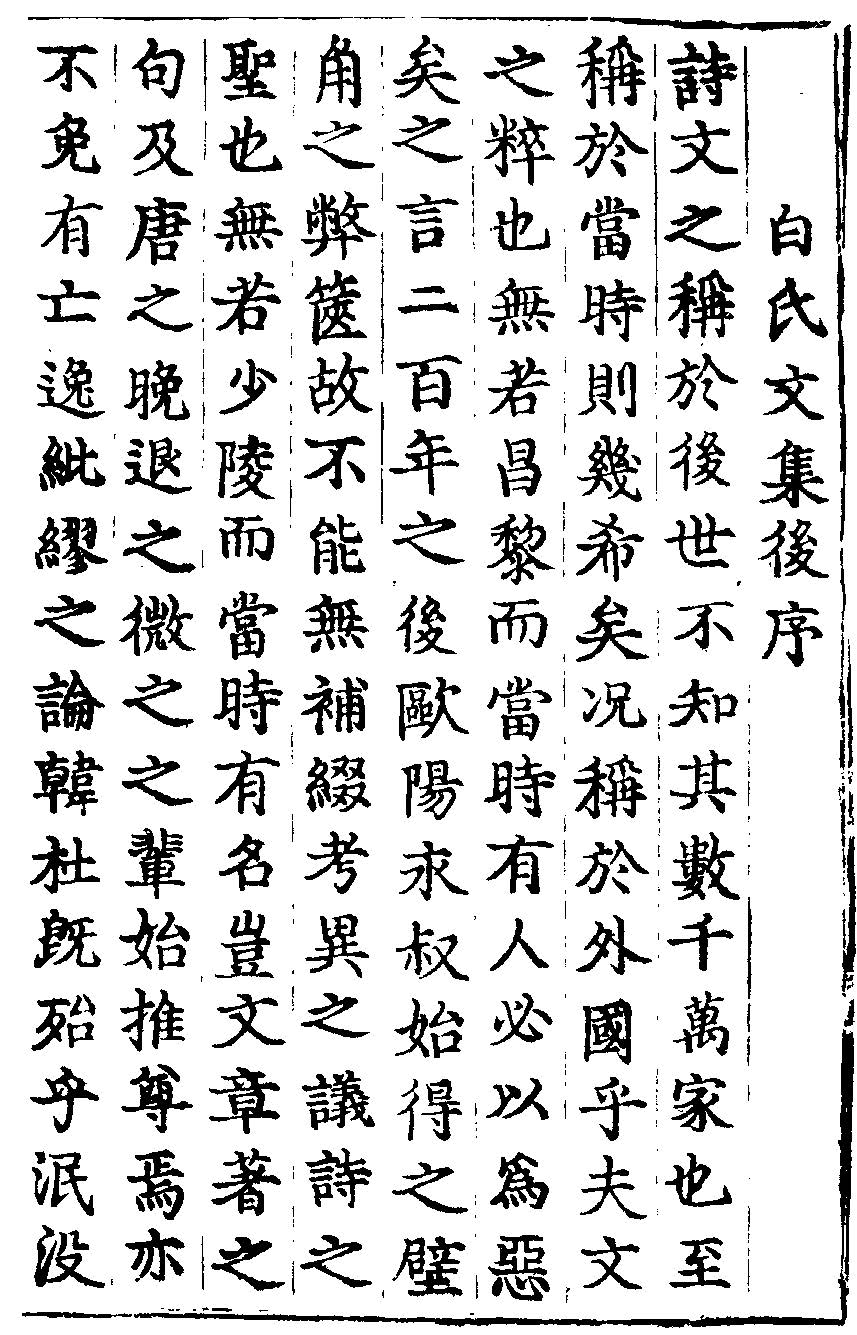 白氏文集後序
詩文之稱於後世不知其數千萬家也至
稱於當時則幾希矣况稱於外國乎夫文
之粹也無若昌黎而當時有人必以爲惡
矣之言二百年之後歐陽永叔始得之壁
角之弊篋故不能無補綴考異之議詩之
聖也無若少陵而當時有名豈文章著之
句及唐之晚退之微之之輩始推尊焉亦
不免有亡逸紕繆之論韓杜既殆乎泯没